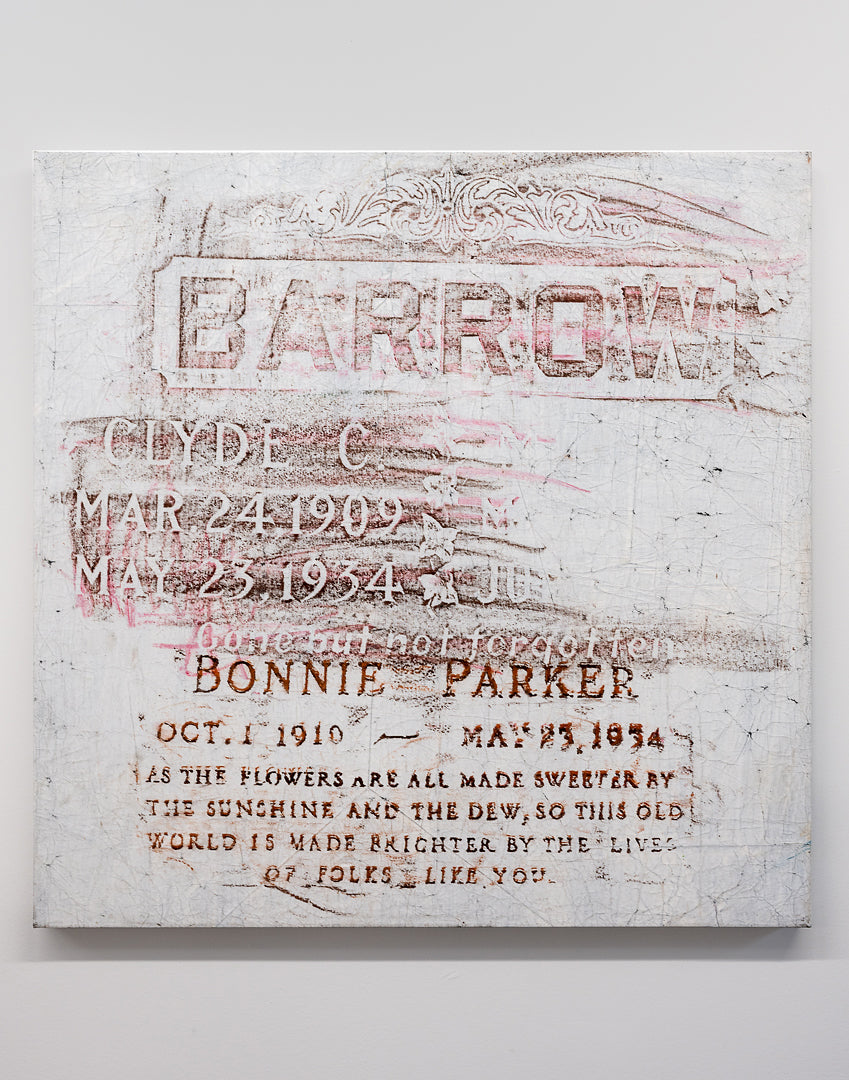 BARROW
CLYDE C.
MAR. 24. 1909 M
MAY. 23. 1934 JU
Gone but not forgotten
BONNIE PARKER
OCT. 1 1910 — MAY 23, 1934
AS THE FLOWERS ARE ALL MADE SWEETER BY
THE SUNSHINE AND THE DEW, SO THIS OLD
WORLD IS MADE BRIGHTER BY THE LIVES
OF FOLKS LIKE YOU.